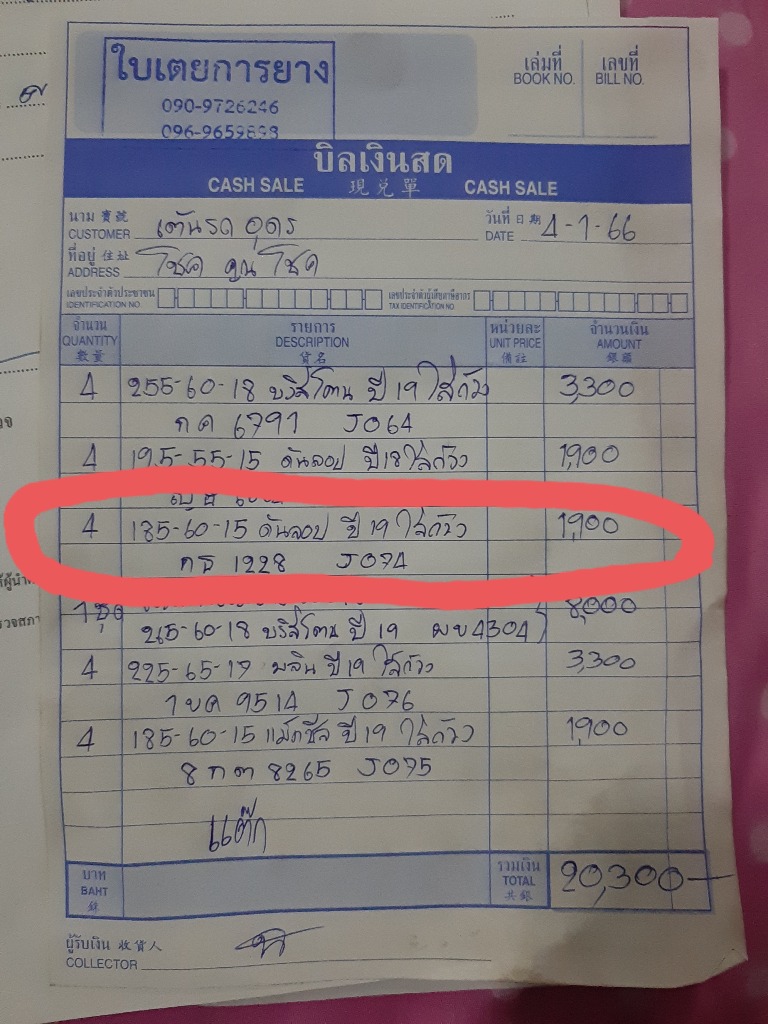 ใบเตยการยาง
090-9726246
096-9659898
เล่มที่
BOOK NO.
เลขที่
BILL NO.
บิลเงินสด
CASH SALE 現兌單 CASH SALE
นาม 寶號
CUSTOMER เต้นรถ อุดร
วันที่ 日期
DATE 4-1-66
ที่อยู่ 住址
ADDRESS โชค คูณ โชค
เลขประจำตัวประชาชน
IDENTIFICATION NO.
เลขประจำตัวผู้เสียภาษีอากร
TAX IDENTIFICATION NO.
จำนวน
QUANTITY
數量
รายการ
DESCRIPTION
貨名
หน่วยละ
UNIT PRICE
備註
จำนวนเงิน
AMOUNT
銀碼
4 255-60-18 บริสโตน ปี 19 ใส่แล้ว 3,300
กค 6791 J064
4 195-55-15 ดันลอป ปี 18 ใส่แล้ว 1,900
4 185-60-15 ดันลอป ปี 19 ใส่แล้ว 1,900
กธ 1228 J074
1 ชุด 8,000
-60-18 บริสโตน ปี 19 ผข 4304
4 225-65-17 ปี 19 ใส่แล้ว 3,300
1ขค 9514 J076
4 185-60-15 แม็กซีส ปี 19 ใส่แล้ว 1,900
8กต 8265 J075
แต๊ก
บาท
BAHT
銖
รวมเงิน
TOTAL
共銀
20,300
ผู้รับเงิน 收貨人
COLLECTOR